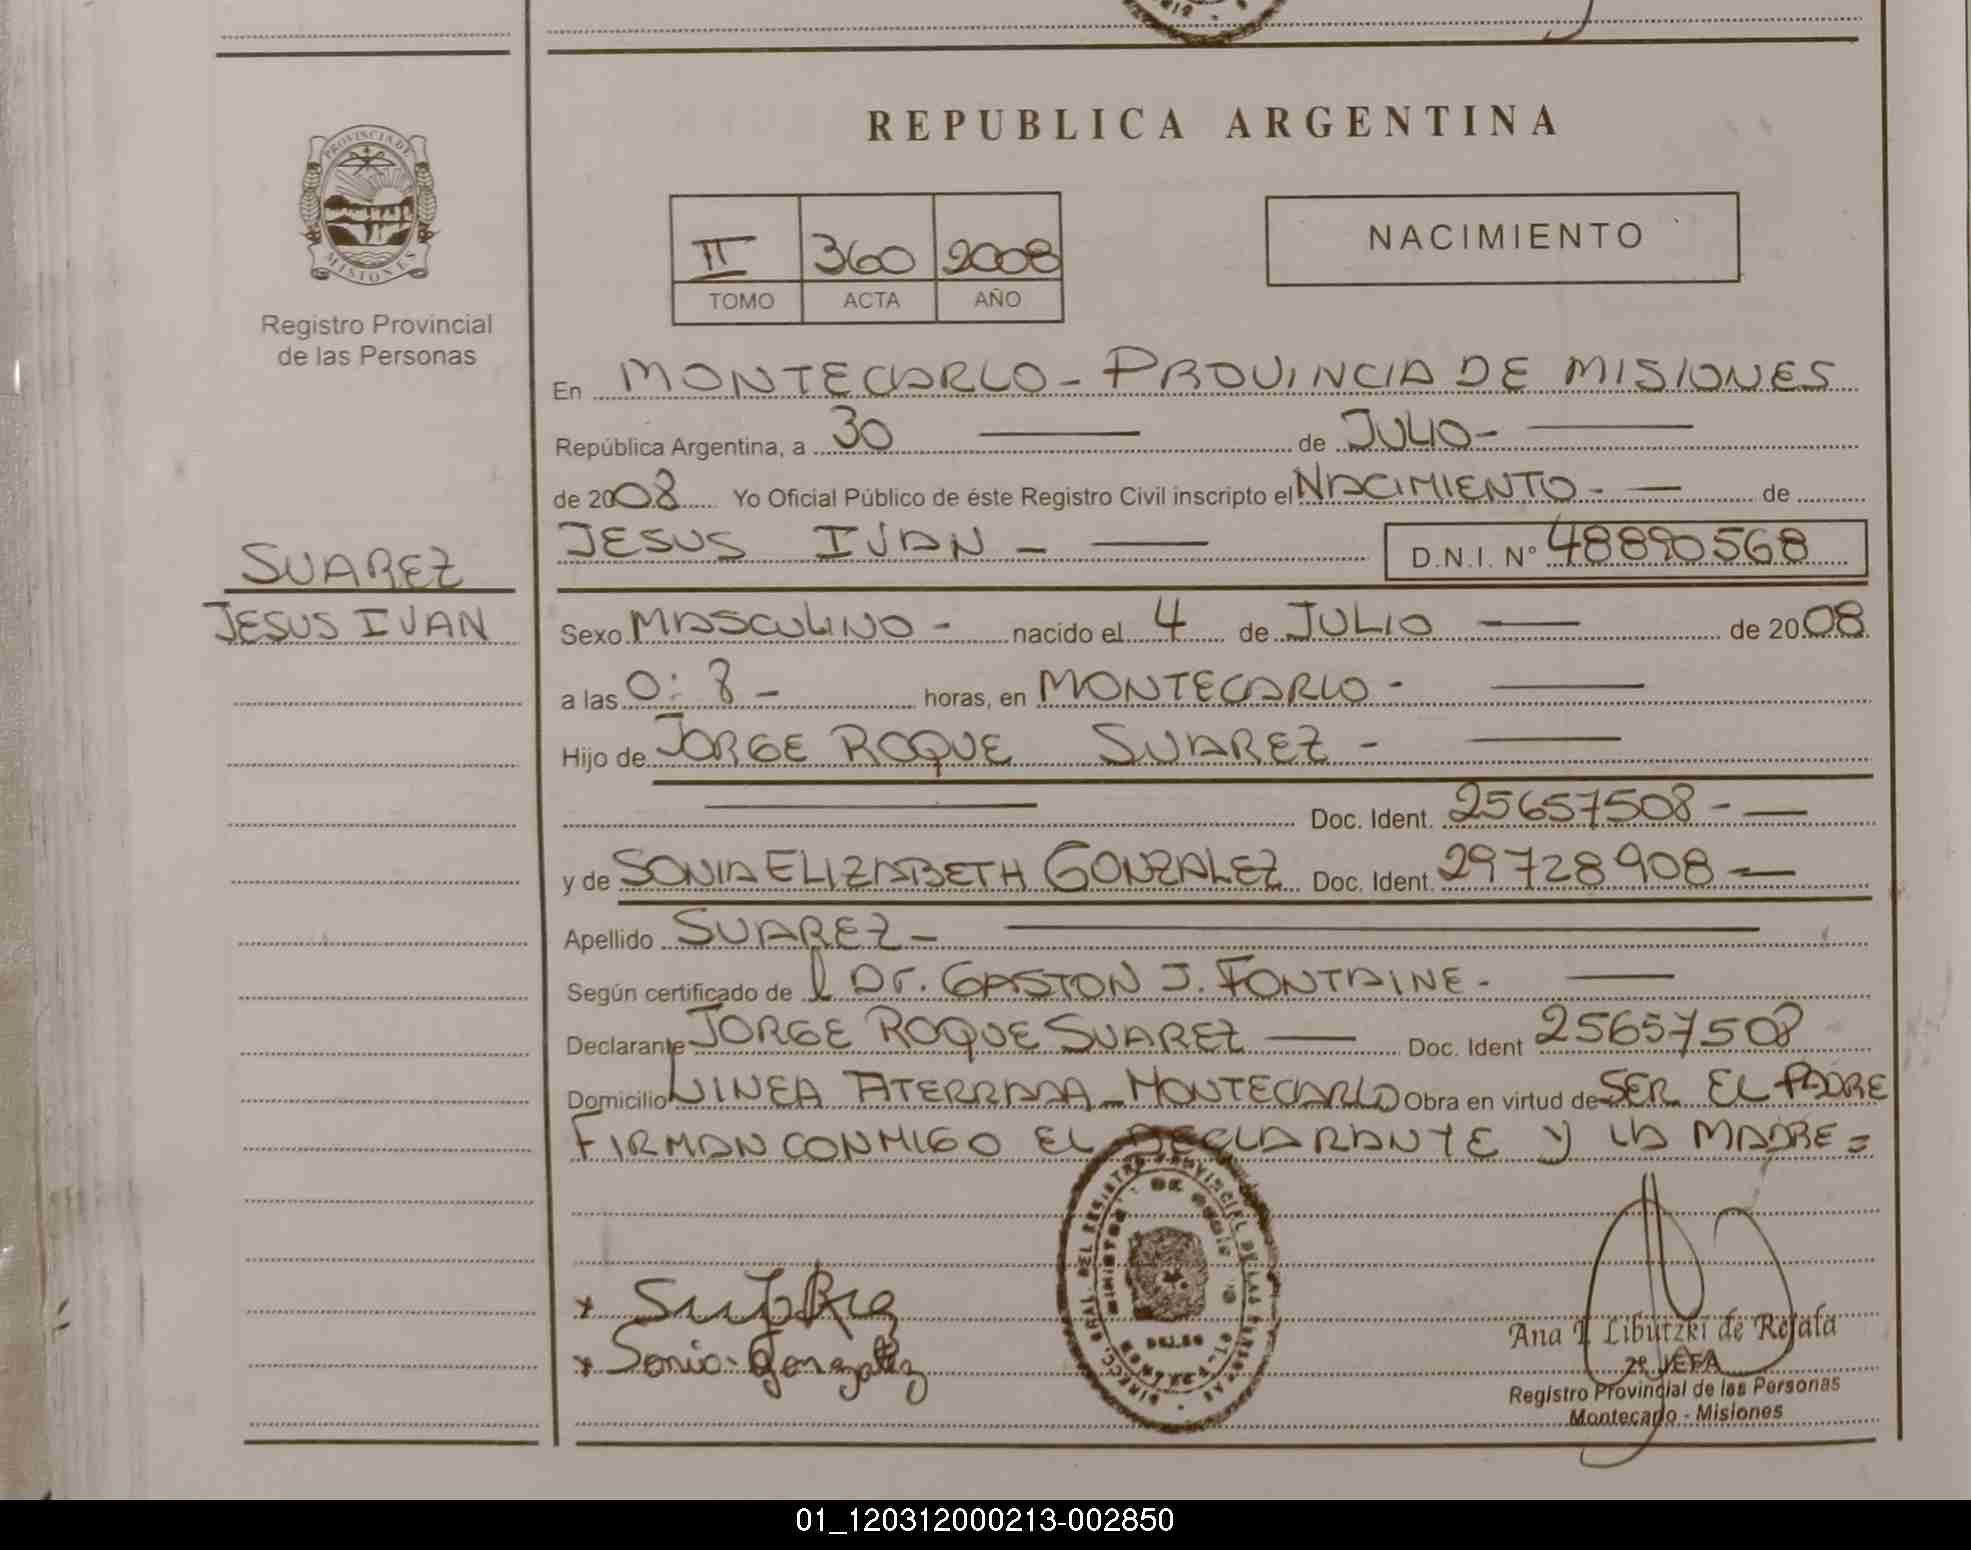 REPUBLICA ARGENTINA
PROVINCIA DE
MISIONES
Registro Provincial
de las Personas
II 360 2008
TOMO ACTA AÑO
NACIMIENTO
En MONTECARLO - PROVINCIA DE MISIONES
República Argentina, a 30 de JULIO-
de 2008 Yo Oficial Público de éste Registro Civil inscripto el NACIMIENTO - de
JESUS IVAN - D.N.I. Nº 48890568
SUAREZ
JESUS IVAN
Sexo MASCULINO - nacido el 4 de JULIO de 2008
a las 0: 8 - horas, en MONTECARLO -
Hijo de JORGE ROQUE SUAREZ -
Doc. Ident. 25657508 -
y de SONIA ELIZABETH GONZALEZ Doc. Ident. 29728908 -
Apellido SUAREZ -
Según certificado de l Dr. GASTON J. FONTAINE -
Declarante JORGE ROQUE SUAREZ Doc. Ident 25657508
Domicilio LINEA ATERRADA - MONTECARLO Obra en virtud de SER EL PADRE
FIRMAN CONMIGO EL DECLARANTE Y LA MADRE =
Sonia Gonzalez
Ana Libutzki de Rejala
2ª JEFA
Registro Provincial de las Personas
Montecarlo - Misiones
01_120312000213-002850